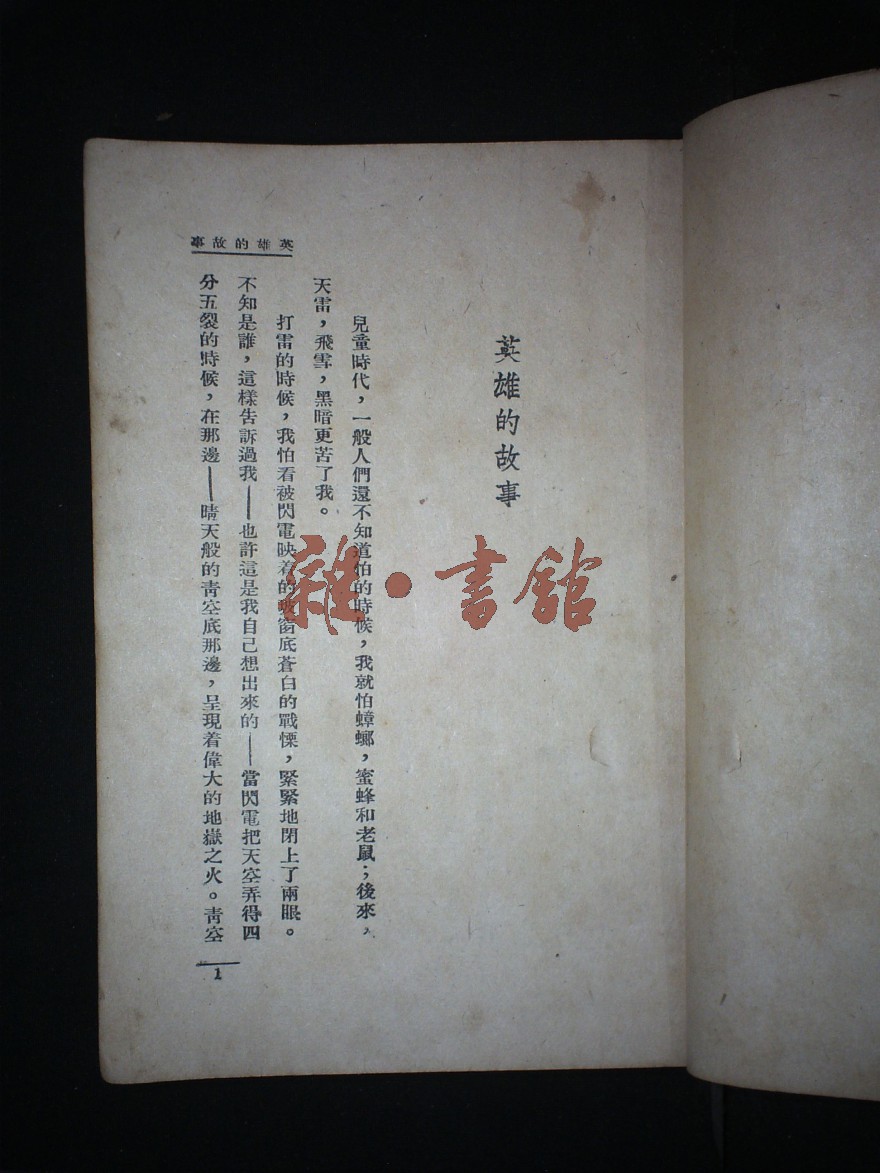 英雄的故事
英雄的故事
兒童時代，一般人們還不知道怕的時候，我就怕蟑螂，蜜蜂和老鼠；後來，
天雷，飛雪，黑暗更苦了我。
打雷的時候，我怕看被閃電映着的玻窗底蒼白的戰慄，緊緊地閉上了兩眼。
不知是誰，這樣告訴過我——也許這是我自己想出來的——當閃電把天空弄得四
分五裂的時候，在那邊——晴天般的靑空底那邊，呈現着偉大的地嶽之火。靑空
1
雜·書館